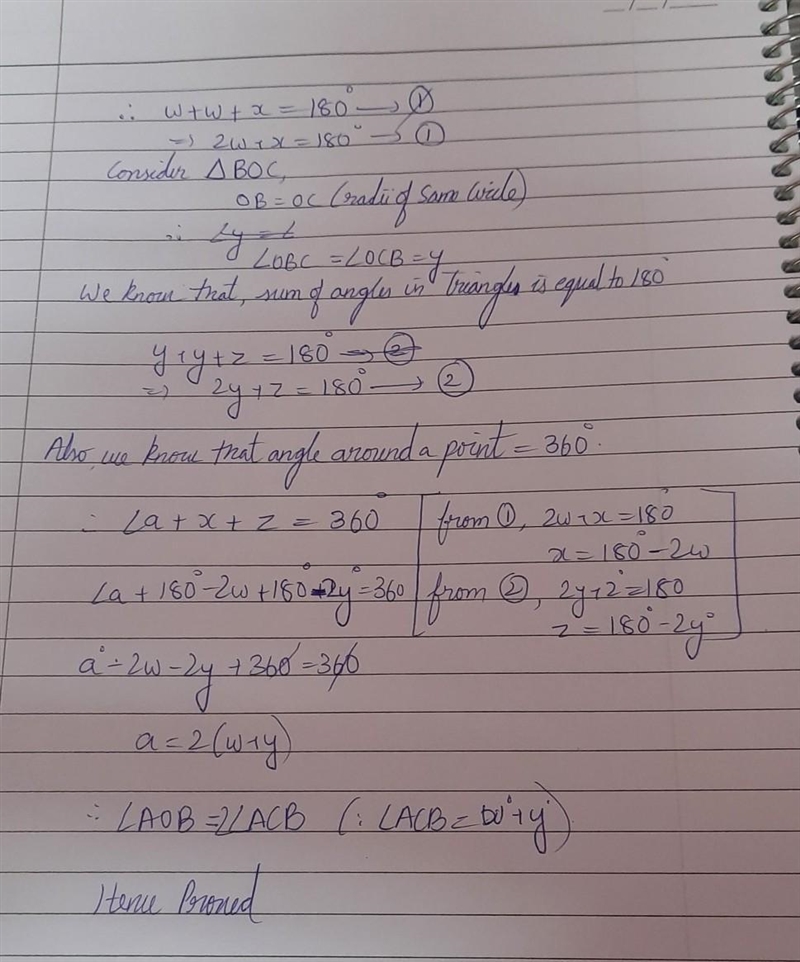 ∴ w+w+x = 180° → ①
⇒ 2w+x = 180° → ①
Consider △BOC,
OB = OC (radii of same circle)
∴ ∠y = ∠
∠OBC = ∠OCB = y
We know that, sum of angles in triangles is equal to 180°
y+y+z = 180° → ②
⇒ 2y+z = 180° → ②
Also, we know that angle around a point = 360°.
∴ ∠a + x + z = 360°
from ①, 2w+x = 180°
x = 180° - 2w
∠a + 180° - 2w + 180° - 2y° = 360
from ②, 2y+z° = 180
z = 180° - 2y°
a° - 2w - 2y + 360° = 360
a = 2(w+y)
∴ ∠AOB = 2∠ACB (∵ ∠ACB = w°+y°)
Hence Proved